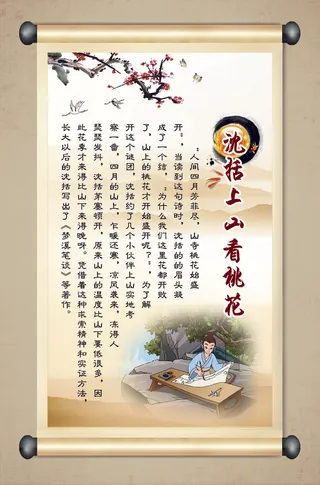 沈括上山看桃花
“人间四月芳菲尽，山寺桃花始盛
开”，当读到这句诗时，沈括的的眉头凝
成了一个结，“为什么我们这里花都开败
了，山上的桃花才开始盛开呢？”，为了解
开这个谜团，沈括约了几个小伙伴上山实地考
察一番，四月的山上，乍暖还寒，凉风袭来，冻得人
瑟瑟发抖，沈括茅塞顿开，原来山上的温度比山下要低很多，因
此花季才来得比山下来得晚呀。凭借着这种求索精神和实证方法，
长大以后的沈括写出了《梦溪笔谈》等著作。